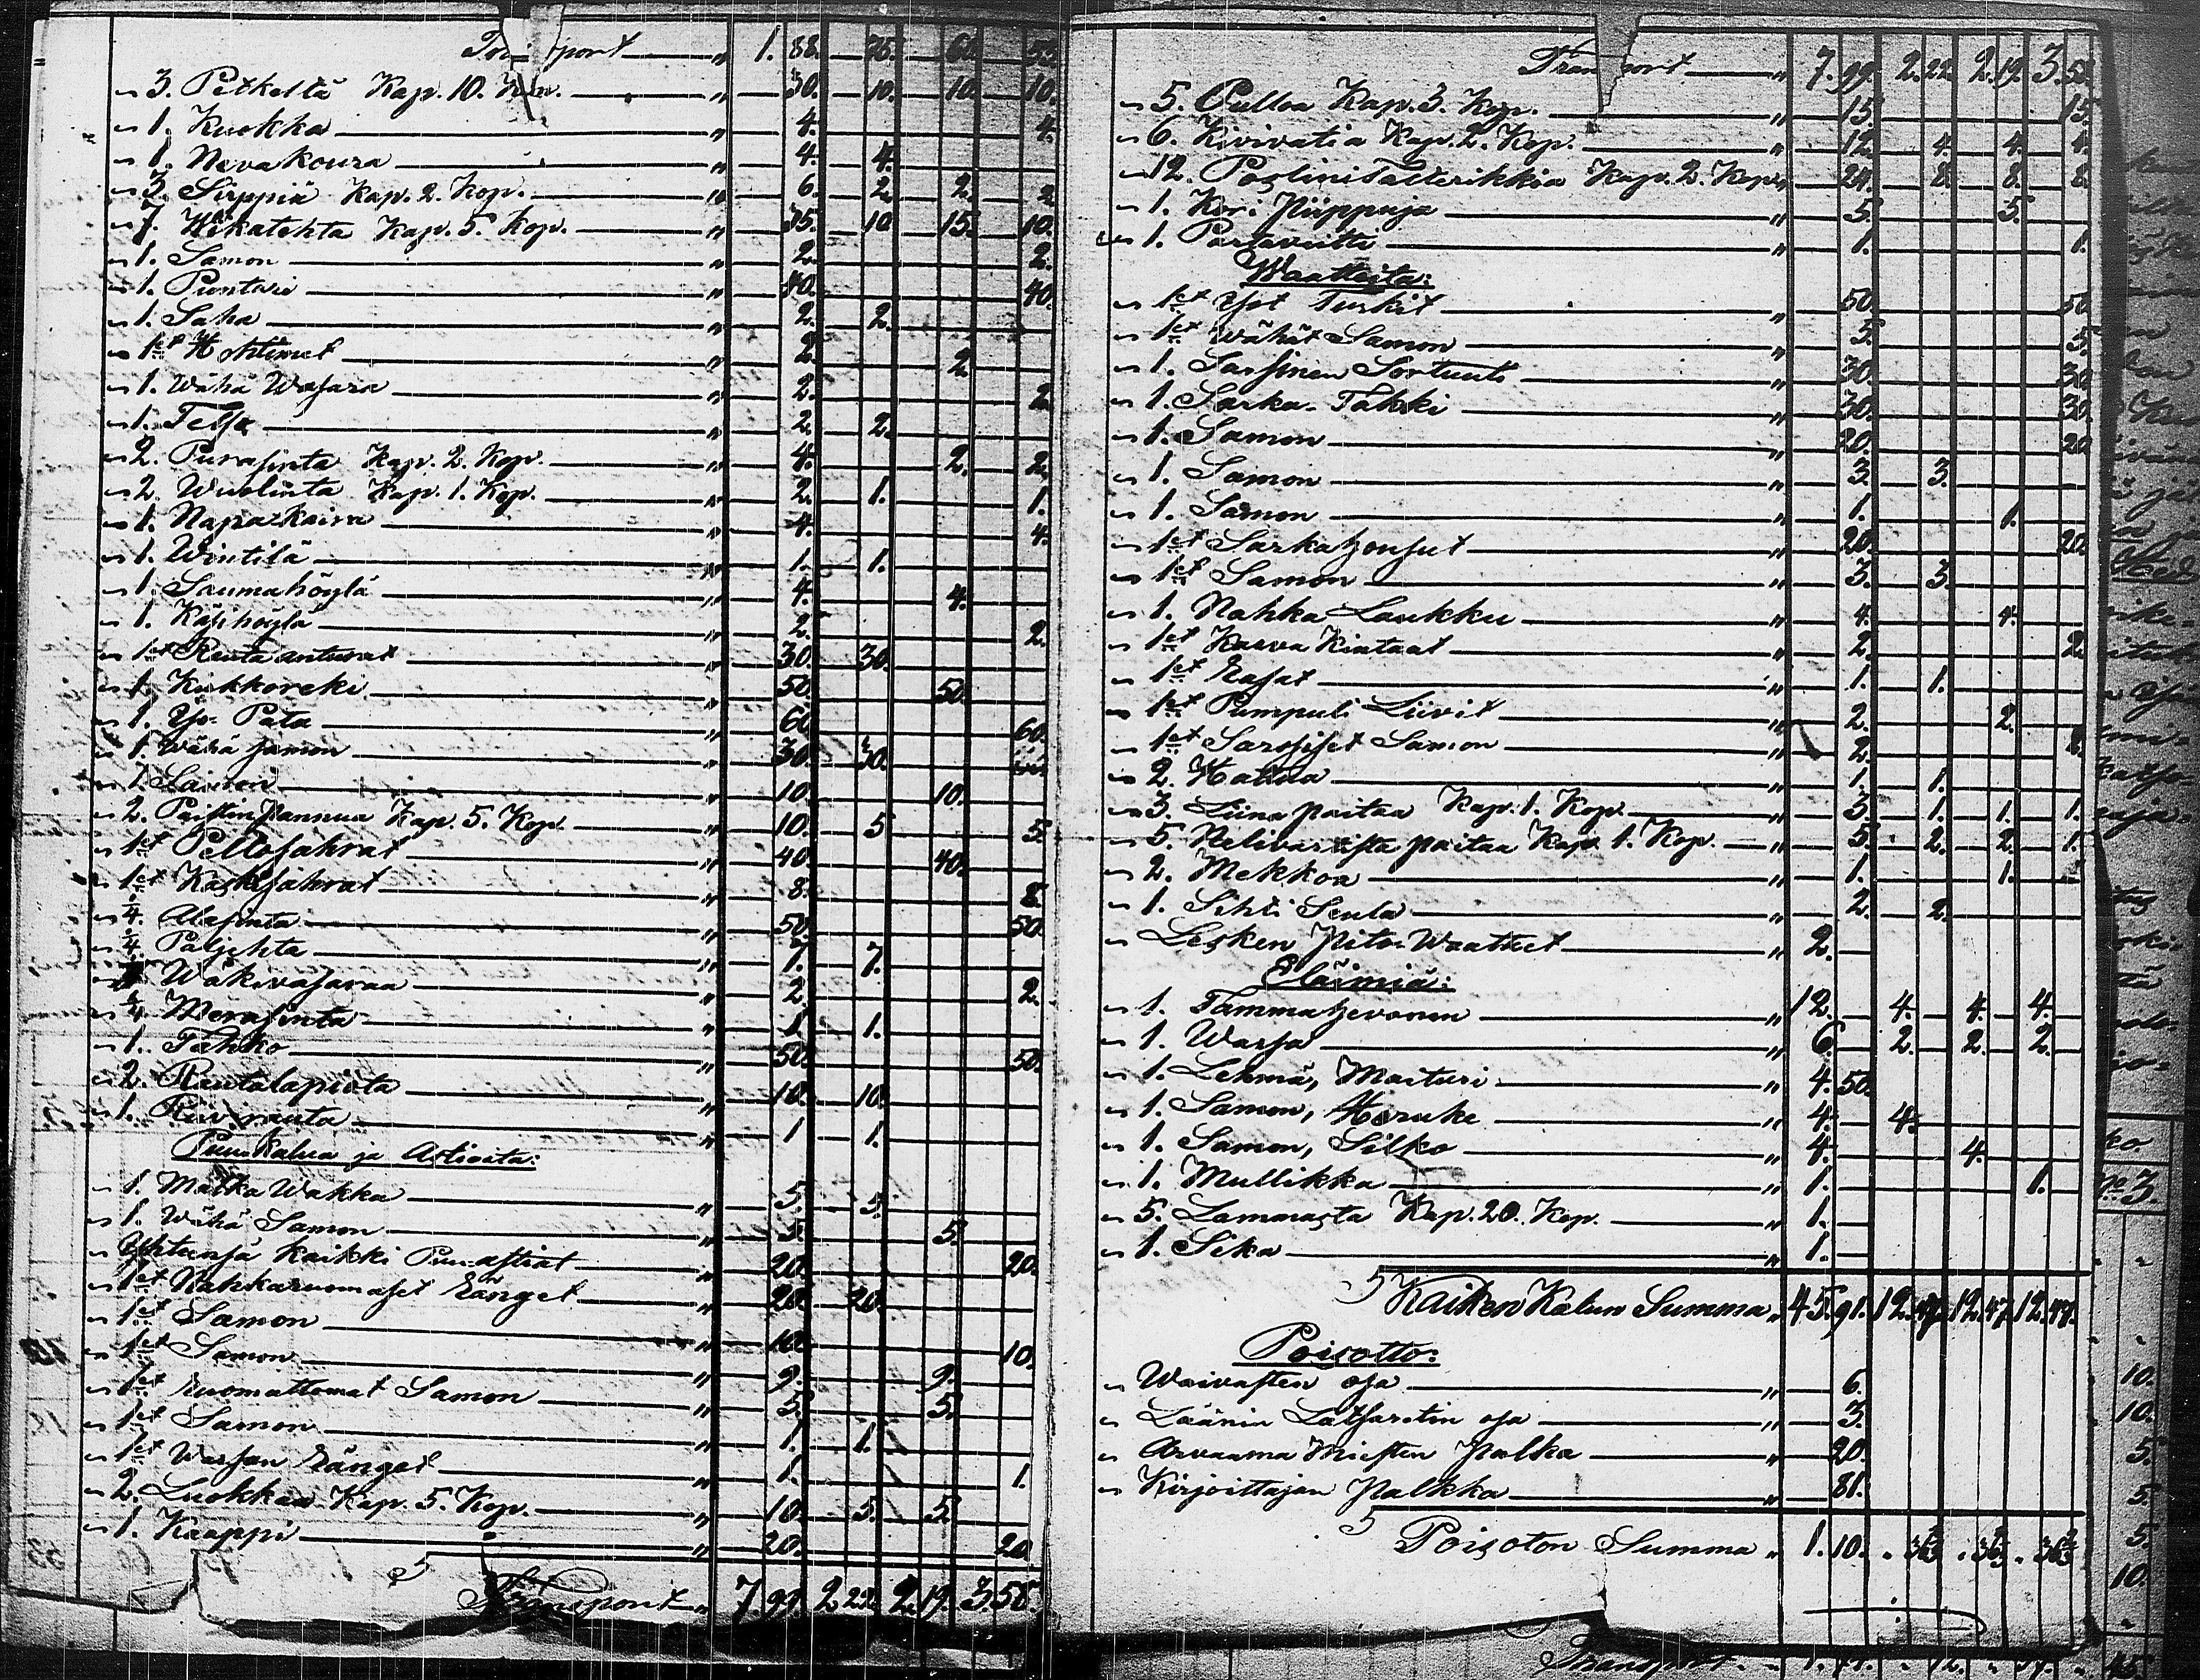 Transport „ 1. 88. 75. 60. 53.
„ 3. Petkeltä Kap. 10. Kop. „ 30. 10. 10. 10.
„ 1. Kuokka „ 4. 4.
„ 1. Nevakoura „ 4. 4.
„ 3. Sirppiä Kap. 2. Kop. „ 6. 2. 2. 2
„ 7. Wikatehta Kap. 5. Kop. „ 35. 10. 15. 10.
„ 1. Samon „ 2. 2.
„ 1. Puntari „ 40. 40.
„ 1. Saha „ 2. 2.
„ 1et Hohtimet „ 2. 2.
„ 1. Wähä Wasara „ 2. 2.
„ 1. Telsa „ 2. 2.
„ 2. Purasinta Kap. 2. Kop. „ 4. 2. 2.
„ 2. Wuolinta Kap. 1. Kop. „ 2. 1. 1.
„ 1. Napakaira „ 4. 4.
„ 1. Wintilä „ 1. 1.
„ 1. Saumahöylä „ 4. 4.
„ 1. Käsihöylä „ 2. 2.
„ 1et Rauta anturat „ 30. 30.
„ 1. Kirkkoreki „ 50. 50.
„ 1. Iso Pata „ 60. 60.
„ 1. Wähä samon „ 30. 30.
„ 1. Samon „ 10. 10.
„ 2. Paistinpannua Kap. 5. Kop. „ 10. 5 5.
„ 1et Peltosahrat „ 40. 40.
„ 1et Kaskisahrat „ 8. 8.
„ Alasinta „ 50. 50.
„ Paljehta „ 7. 7.
„ Wäkivasaraa „ 2. 2.
„ Merasinta „ 1 1.
„ 1. Tahko „ 50. 50.
„ 2. Rautalapiota „ 10. 10.
„ 1. „ 1 1.
Puu Kalua ja Astioita:
„ 1. Matka Wakka „ 5. 5.
„ 1. Wähä Samon „ 5. 5.
„ Yhtensä kaikki Puu astiat „ 20. 20.
„ 1et Nahkaruomaset Länget „ 20. 20.
„ 1et Samon „ 10. 10.
„ 1et Samon „ 9. 9.
„ 1et ruomattomat Samon „ 5. 5.
„ 1et Samon „ 1. 1.
„ 1et Warsan Länget „ 1. 1.
„ 2. Luokkaa Kap. 5. Kop. „ 10. 5. 5.
„ 1. Kaappi „ 20. 20
Transport „ 7. 99. 2 22. 2. 19. 3. 58.
Transport „ 7. 99. 2. 22. 2. 19. 3. 58.
„ 5. Pulloa Kap. 3. Kop. „ 15. 15.
„ 6. Kivivatia Kap. 2. Kop. „ 12. 4. 4. 4.
„ 12. Posliini Talterikkia Kap. 2. Kop. „ 24. 8. 8. 8
„ 1. Kori Piippuja „ 5. 5.
„ 1. Partaveitti „ 1. 1.
Waatteita:
„ 1et Isot Turkit „ 50. 50
„ 1et Wähät Samon „ 5. 5.
„ 1. Sarsinen Sortuuti „ 30. 30
„ 1. Sarka-Takki „ 30. 30.
„ 1. Samon „ 20. 20
„ 1. Samon „ 3. 3.
„ 1. Samon „ 1. 1.
„ 1et Sarkahousut „ 20. 20
„ 1et Samon „ 3. 3.
„ 1. Nahka Laukku „ 4. 4.
„ 1et Karva Kintaat „ 2. 2
„ 1et „ 1. 1.
„ 1et Pumpuli Liivit „ 2. 2.
„ 1et Sarasiset Samon „ 2. 2.
„ 2. Hattua „ 1. 1.
„ 3. Liina paitaa Kap. 1. Kop. „ 3. 1. 1. 1.
„ 5. Nelivartista paitaa Kap. 1. Kop. „ 5. 2. 2. 1.
„ 2. Mekkoa „ 1. 1.
„ 1. Sihti Seula „ 2. 2.
„ Lesken Pito-Waatteet „ 2.
Eläimiä:
„ 1. Tammahevonen „ 12. 4. 4. 4.
„ 1. Warsa „ 6. 2. 2. 2.
„ 1. Lehmä, Maituri „ 4. 50.
„ 1. Samon, Heruke „ 4. 4.
„ 1. Samon, Silko „ 4. 4.
„ 1. Mullikka „ 1. 1.
„ 5. Lammasta Kap. 20. Kop. „ 1.
„ 1. Sika „ 1.
Kaiken Kalun Summa „ 45. 91. 12. 47. 12. 47. 12. 47.
Poisotto:
„ Waivasten osa „ 6.
„ Läänin Latsaretin osa „ 3.
„ Arvaama Miesten palka „ 20.
„ Kirjoittajan Palkka „ 81.
Poisoton Summa „ 1. 10. „ 36 2/3 „ 36 2/3 „ 36 2/3
Transport.